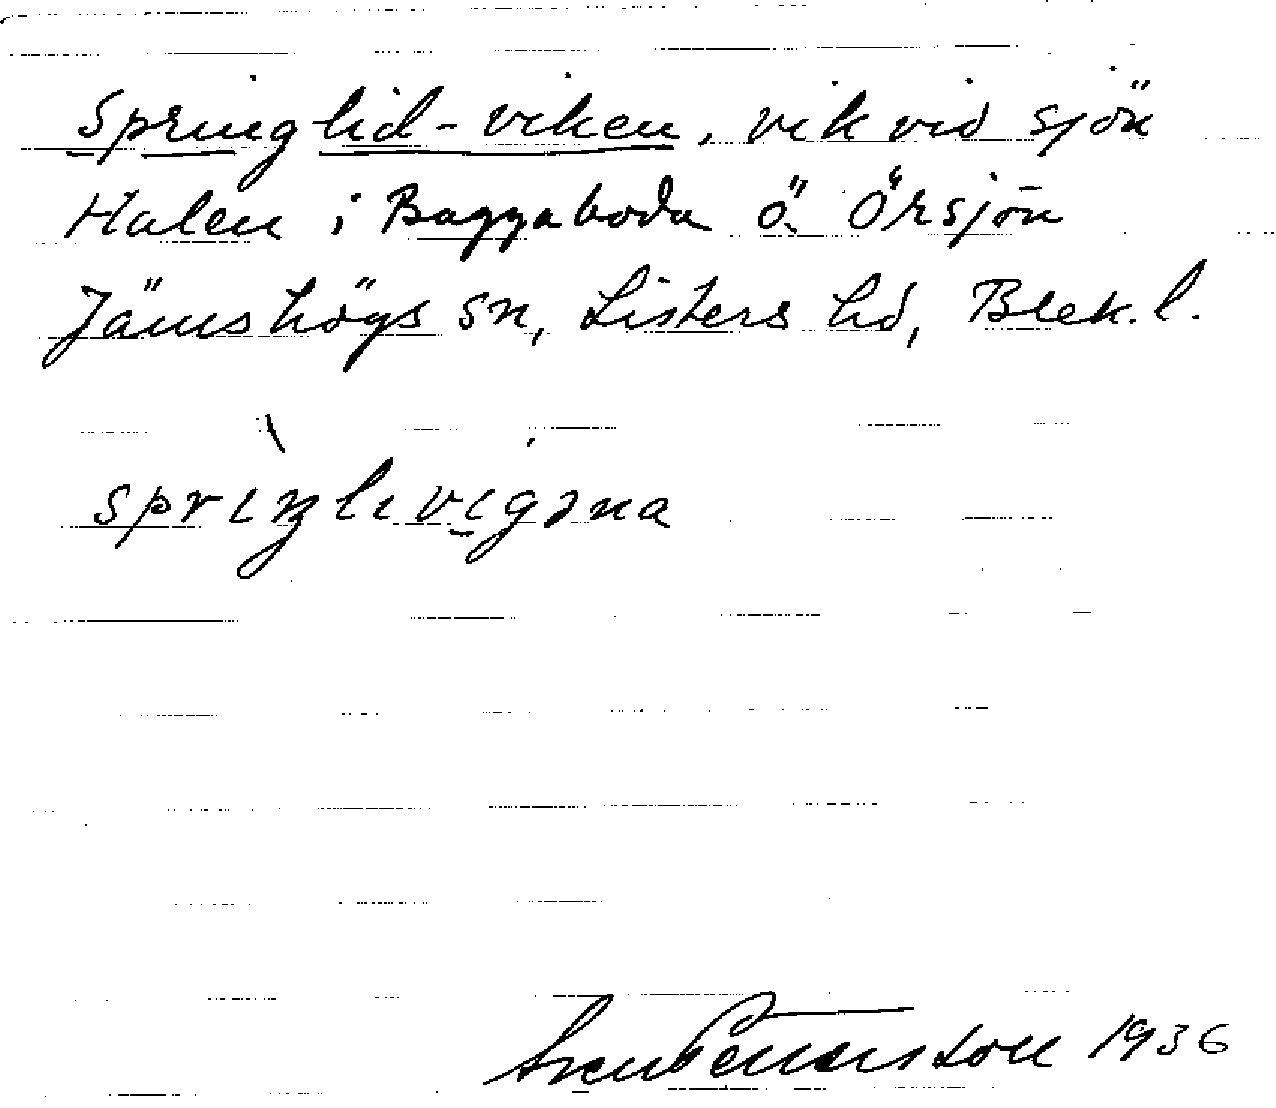 Springlid-viken, vik vid sjön
Halen i Baggaboda ö. Örsjön
Jämshögs sn, Listers hd, Blek. l.
sprìŋlivigəna
Sven Pettersson 1936